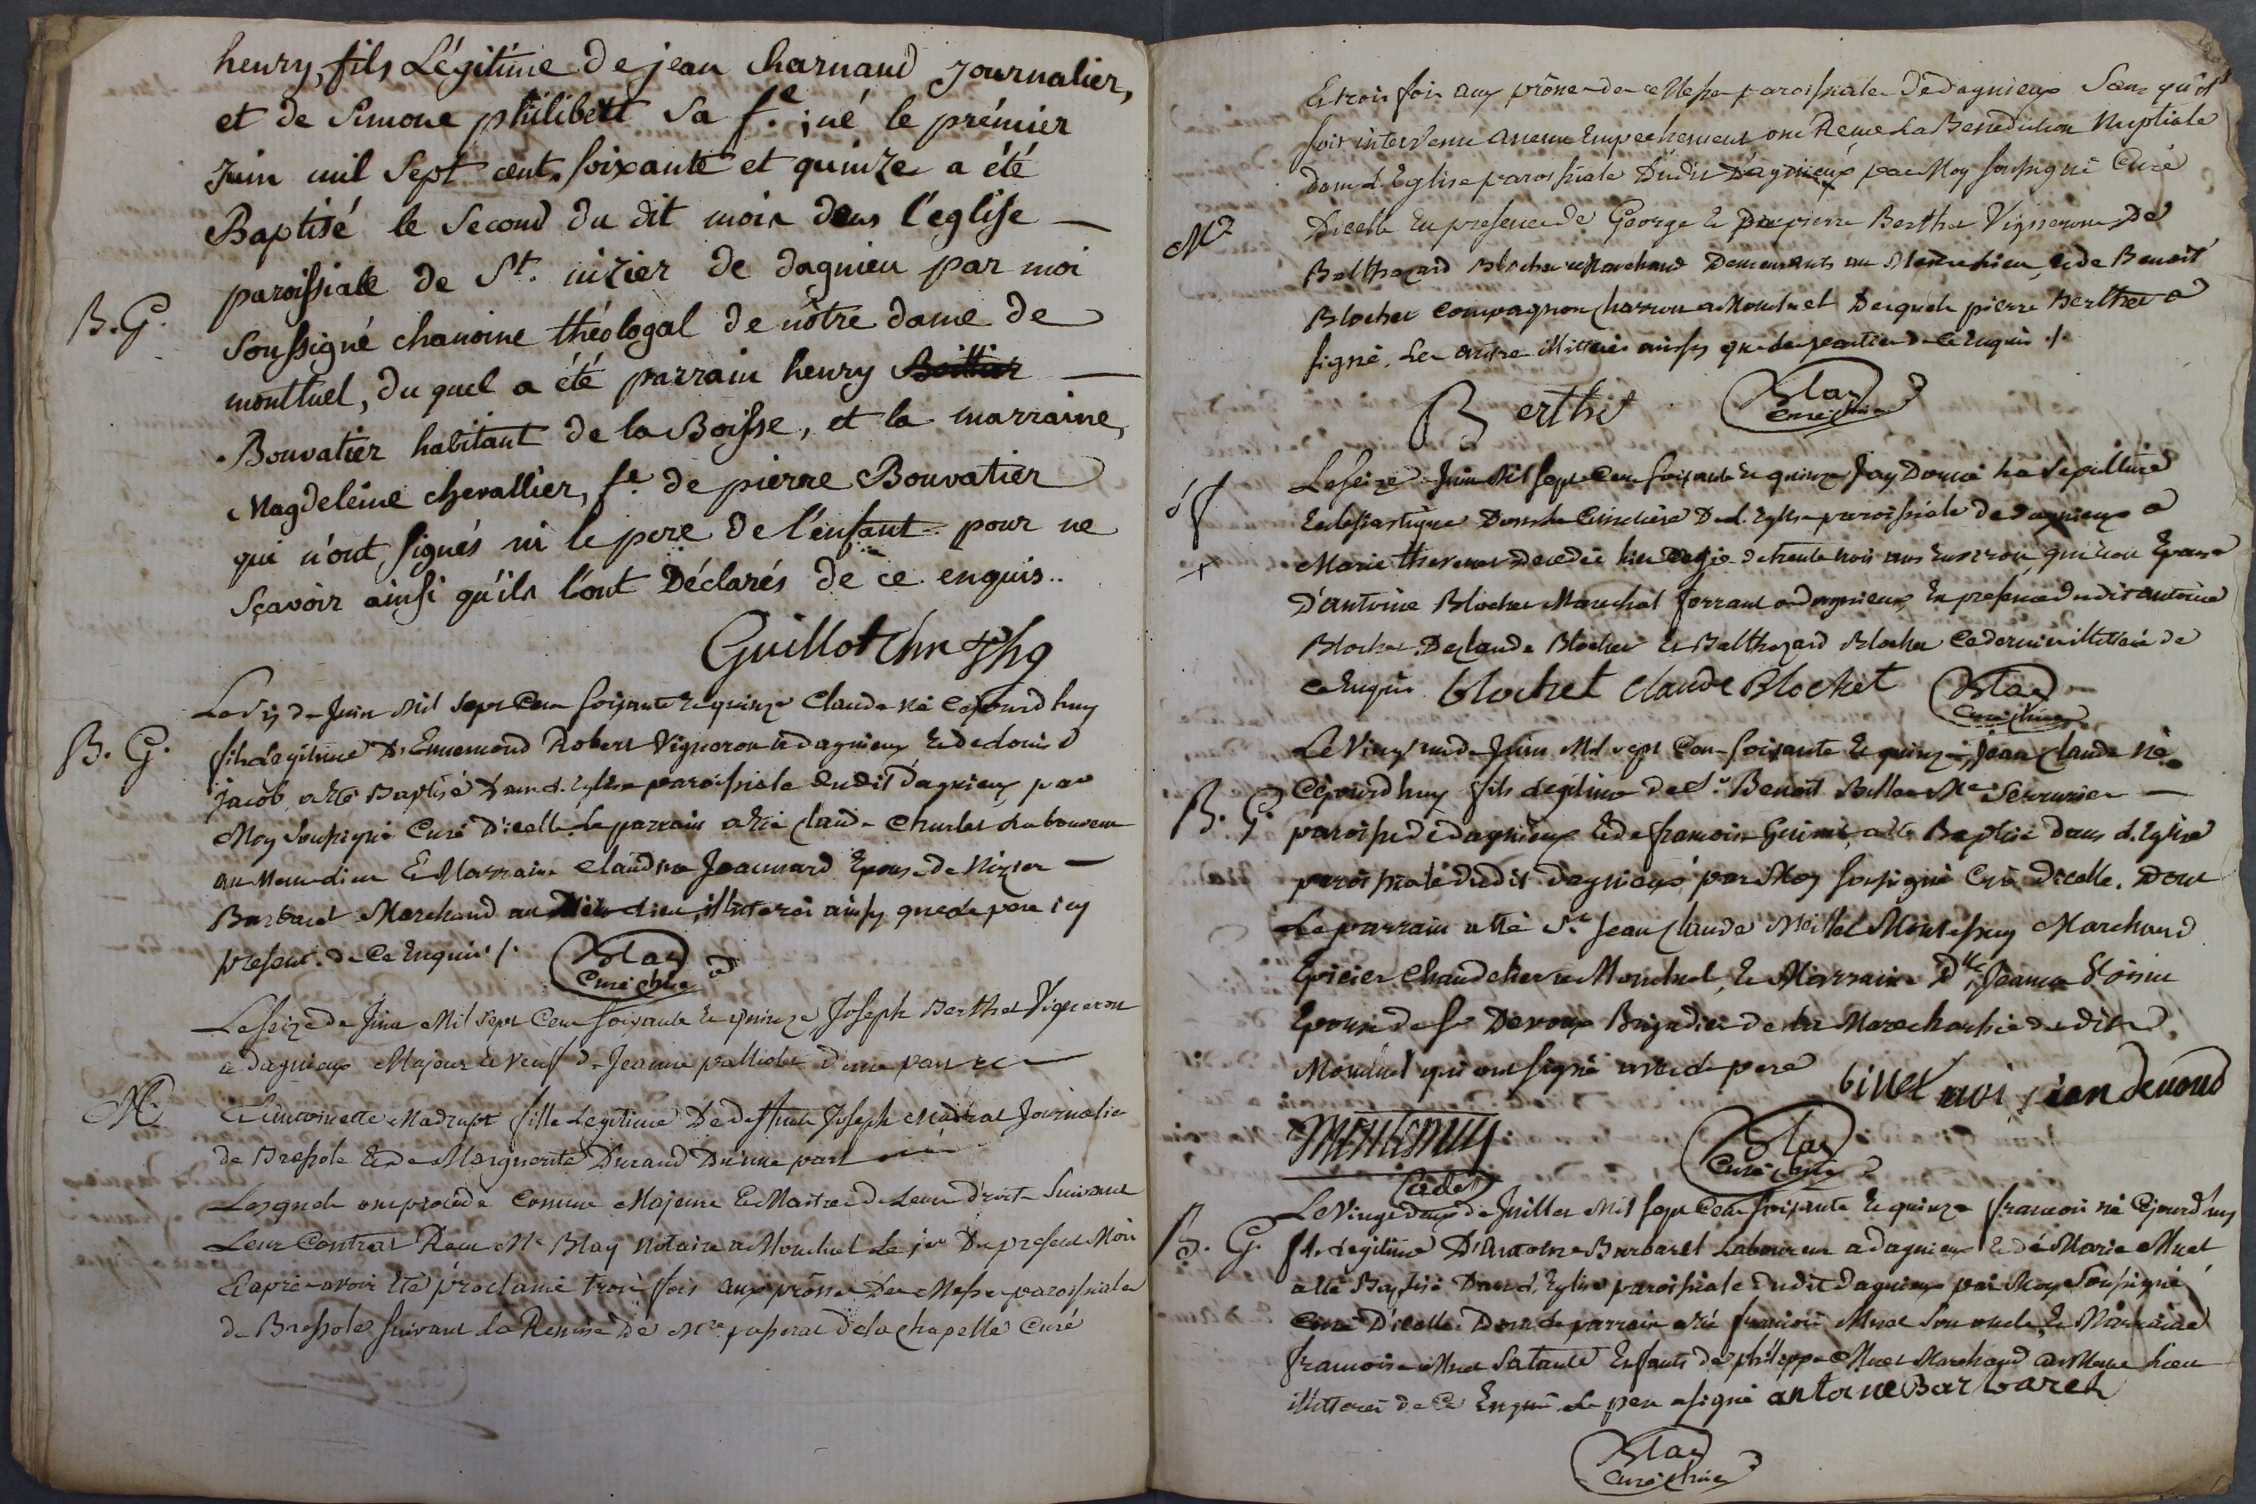 henry, fils Légitime de jean charnaud journalier,
et de Simone philibert sa f.e ; né le prémier
Juin mil sept cent soixante et quinze a été
Baptisé le second du dit mois dans l'eglise —
paroissiale de St. nizier de dagnieu par moi
B. G.
soussigné chanoine théologal de nôtre dame de
montluel, du quel a été parrain henry
Bouvatier habitant de la Boisse, et la marraine,
Magdeleine chevallier, f.e de pierre Bouvatier
qui n'ont signés ni le pere de l'enfant pour ne
sçavoir ainsi qu'ils l'ont Déclarés de ce enquis..
Guillot chne
Le de Juin Mil sept Cen soixante et quinze Claude né Cejourd huy
B. G.
fils Legitime D'Ennemond Robert Vigneron a dagnieux et de Louise
jacob a été Baptisé Dans d. Eglise paroissiale dudit dagnieux par
Moy soussigné Curé D'icelle Le parrain a été Claude Charles Laboureur
au Mene dieu Et Marraine Claudine Jeannard Epouse de Nizier —
Barbaret Marchand au dieu illiteréi ainsy que le pere icy
present de Ce Enquis /.
Blay
Curé chne
Le seize de Juin Mil sept Cen soixante et quinze Joseph Berthet Vigneron
a dagnieux Majeur et veuf de Jeanne d'une part et —
M.
Et antoinette Madrat fille Legitime De deffunt Joseph Madrat Journalier
de Bressole et de Marguerite Durand D'une part
Lesquels ont procédé Comme Majeurs Et Maitres de Leurs droits suivant
Leur Contrat Recu Me Blay Notaire a Montluel Le Du present Mois
Et aprés avoir été proclamé trois fois aux prônes De Messe paroissiale
de Bressoles suivant La Remise De Mre de la chapelle Curé
Et trois fois aux prônes de Messe paroissiale de dagnieux sans qu'il
soit intervenu aucun Empechement ont Reçue La Benediction Nuptiale
dans d. Eglise paroissiale Dudit Dagnieux par Moy soussigné Curé
D'icelle En presence de George et pierre Berthet Vignerons De
Balthazard Blochet Marchand Demeurants au et de Benoit
Blochet Compagnon charron a Montluel Desquels pierre Berthet a
signé. Les autres illitterés ainsy que les parties de Ce Enquis /.
Berthet
Blay
Curé chne
Le seize Juin Mil sept Cen soixante et quinze J'ay Donné La sepulture
Eclesiastique Dans le Cimetiere De d. Eglise paroissiale de dagnieux a
Marie decedée hier agée de trente trois ans Environ Epouse
D'antoine Blochet Marechal ferrant a dagnieux, En presence dudit antoine
Blochet De Claude Blochet Et Balthazard Blochet Ce dernier illitteré de
Ce Enquis blochet Claude Blochet
Blay
Curé chne
Le Vingt un de Juin Mil sept Cen soixante et quinze Jean Claude né
B. G.
Cejourd huy fils Legitime de Sr. Benoit Billet Me Serrurier —
paroisse de dagnieux et de francoise a été Baptisé dans d. Eglise
paroissiale dudit dagnieux par Moy soussigné Curé d'icelle. Dont
Le parrain a été Sr. Jean Claude Montessuy Marchand
Epicier Chandelier a Montluel, Et Marraine Dlle Jeanne
Epouse de Sr Devoux Brigadier de la Marechaussée dudit
Montluel qui ont signé avec le pere billet
montessuy
Cadet
Blay
Curé chne
Le Vingt deux de Juillet Mil sept Cen soixante et quinze francois né Cejourd'huy
B. G.
fils Legitime D'Antoine Barbaret Laboureur a dagnieux Et de Marie Muet
a été Baptisé Dans d. Eglise paroissiale dudit dagnieux par Moy soussigné
Curé D'icelle. Dont Le parrain a été francois Muet Son oncle, et Marraine
francoise Muet Sa tante Enfants de philippe Muet Marchand
illitterés de Ce Enquis Le pere a signé antoine Barbaret
Blay
Curé chne